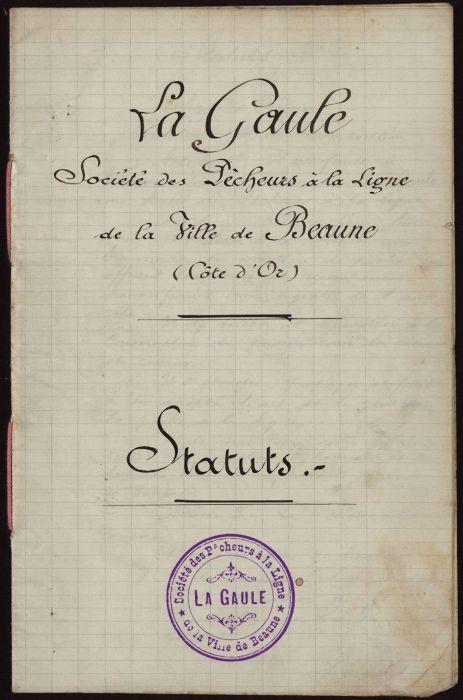 La Gaule
Société des Pêcheurs à la Ligne
de la Ville de Beaune
(Côte d'Or)
Statuts.-
Société des Pêcheurs à la Ligne
LA GAULE
de la Ville de Beaune